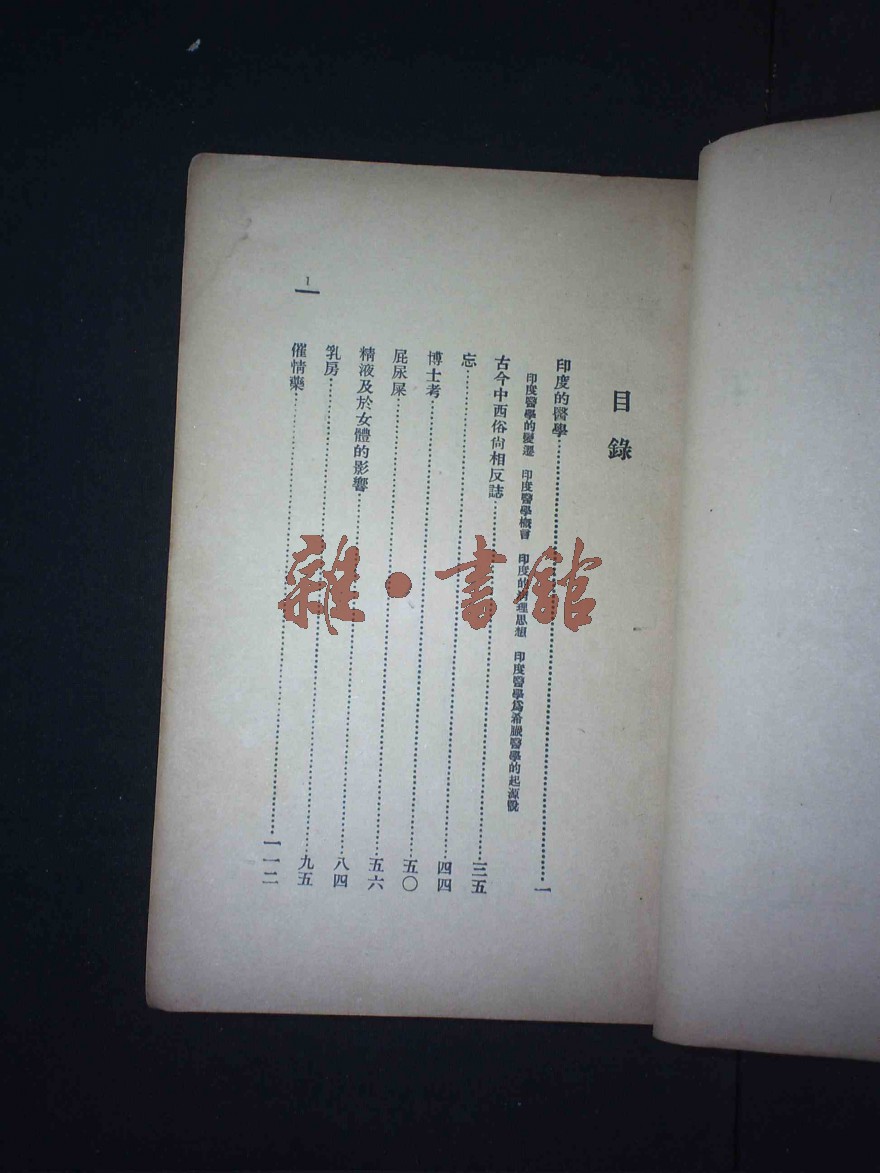 目錄
印度的醫學……一
印度醫學的變遷 印度醫學概習 印度的病理思想 印度醫學爲希臘醫學的起源說
古今中西俗尙相反誌……三五
忘……四四
博士考……五〇
屁尿屎……五六
精液及於女體的影響……八四
乳房……九五
催情藥……一一二
1
雜·書館